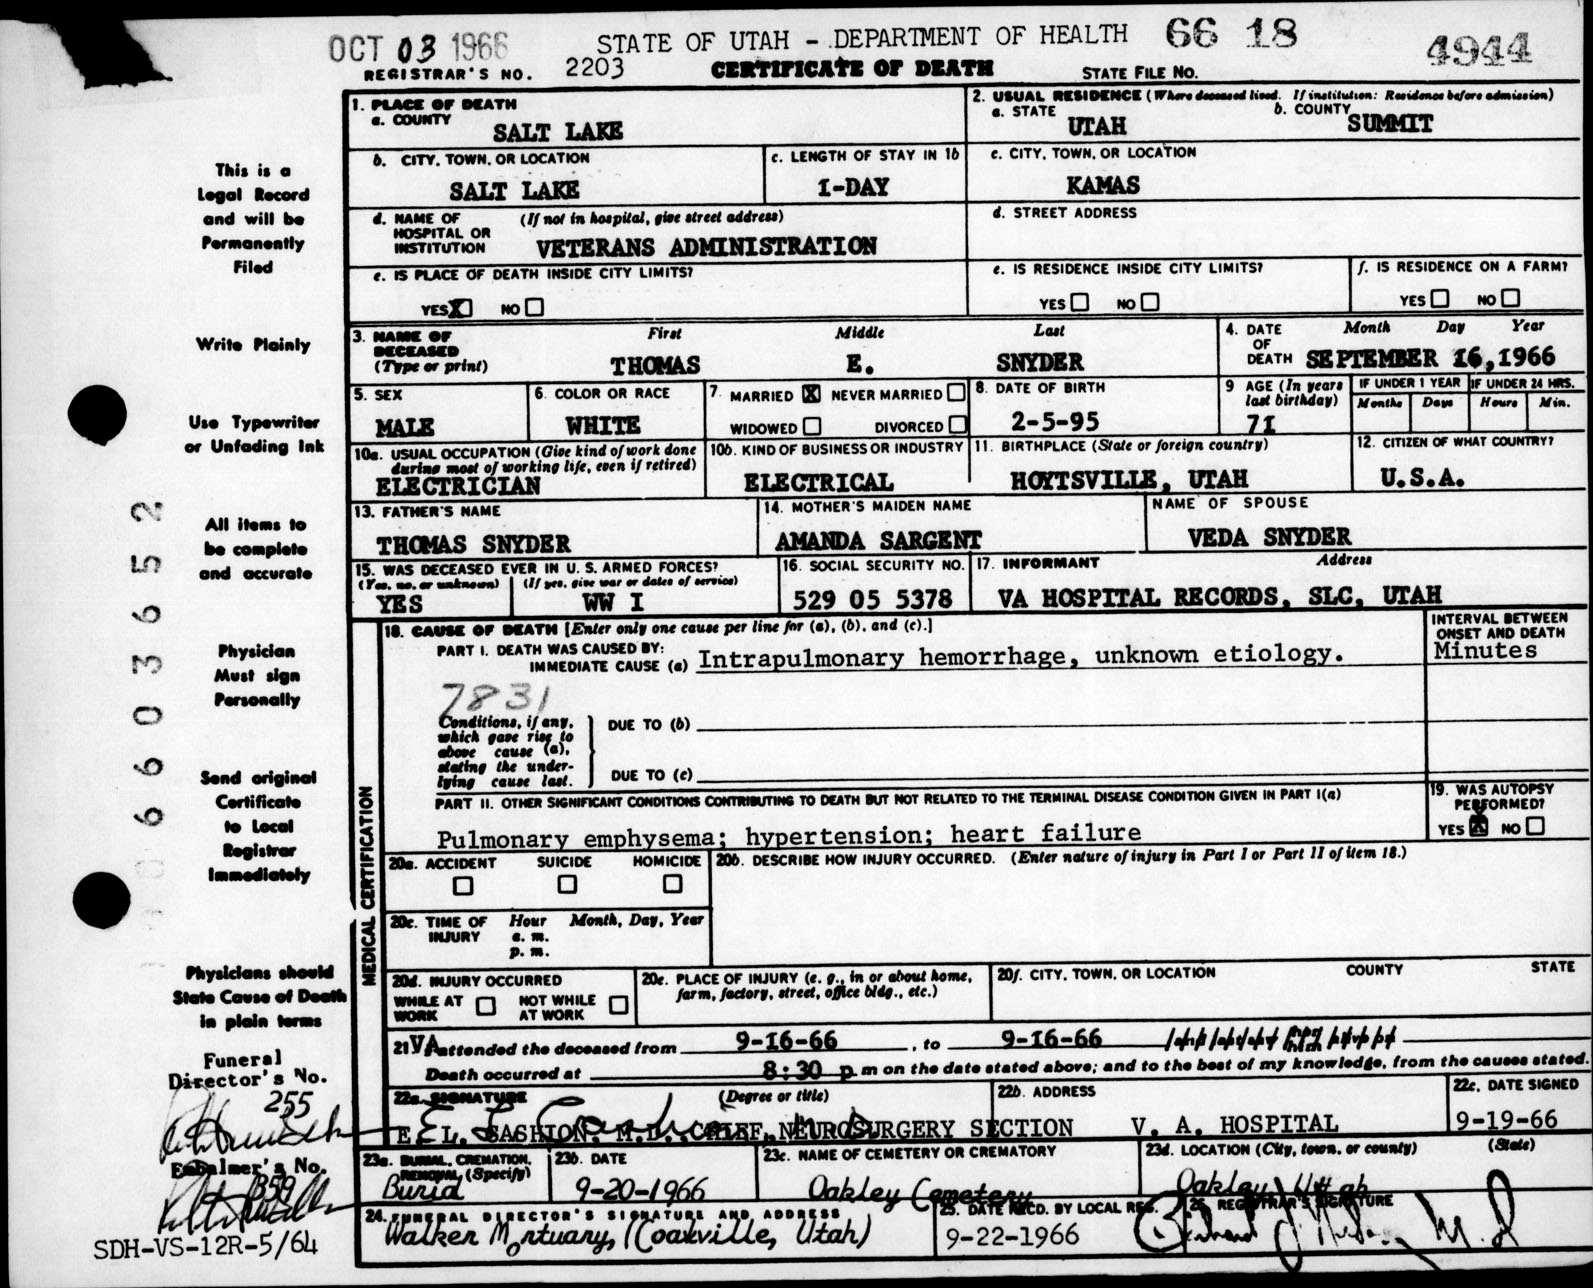 OCT 03 1966
STATE OF UTAH - DEPARTMENT OF HEALTH
66 18
4944
REGISTRAR'S NO. 2203
CERTIFICATE OF DEATH
STATE FILE NO.
This is a
Legal Record
and will be
Permanently
Filed
Write Plainly
Use Typewriter
or Unfading Ink
All items to
be complete
and accurate
Physician
Must sign
Personally
Send original
Certificate
to Local
Registrar
Immediately
Physicians should
State Cause of Death
in plain terms
Funeral
Director's No.
255
Embalmer's No.
359
SDH-VS-12R-5/64
6 6 0 3 6 5 2
1. PLACE OF DEATH
a. COUNTY
SALT LAKE
2. USUAL RESIDENCE (Where deceased lived. If institution: Residence before admission)
a. STATE
UTAH
b. COUNTY
SUMMIT
b. CITY, TOWN, OR LOCATION
SALT LAKE
c. LENGTH OF STAY IN 1b
1-DAY
c. CITY, TOWN, OR LOCATION
KAMAS
d. NAME OF HOSPITAL OR INSTITUTION
(If not in hospital, give street address)
VETERANS ADMINISTRATION
d. STREET ADDRESS
e. IS PLACE OF DEATH INSIDE CITY LIMITS?
YES X NO
e. IS RESIDENCE INSIDE CITY LIMITS?
YES NO
f. IS RESIDENCE ON A FARM?
YES NO
3. NAME OF DECEASED (Type or print)
First Middle Last
THOMAS E. SNYDER
4. DATE OF DEATH
Month Day Year
SEPTEMBER 16, 1966
5. SEX
MALE
6. COLOR OR RACE
WHITE
7. MARRIED X NEVER MARRIED
WIDOWED DIVORCED
8. DATE OF BIRTH
2-5-95
9 AGE (In years last birthday)
71
IF UNDER 1 YEAR
Months Days
IF UNDER 24 HRS.
Hours Min.
10a. USUAL OCCUPATION (Give kind of work done
during most of working life, even if retired)
ELECTRICIAN
10b. KIND OF BUSINESS OR INDUSTRY
ELECTRICAL
11. BIRTHPLACE (State or foreign country)
HOYTSVILLE, UTAH
12. CITIZEN OF WHAT COUNTRY?
U.S.A.
13. FATHER'S NAME
THOMAS SNYDER
14. MOTHER'S MAIDEN NAME
AMANDA SARGENT
NAME OF SPOUSE
VEDA SNYDER
15. WAS DECEASED EVER IN U. S. ARMED FORCES?
(Yes, no, or unknown) (If yes, give war or dates of service)
YES WW I
16. SOCIAL SECURITY NO.
529 05 5378
17. INFORMANT Address
VA HOSPITAL RECORDS, SLC, UTAH
MEDICAL CERTIFICATION
18. CAUSE OF DEATH [Enter only one cause per line for (a), (b), and (c).]
PART I. DEATH WAS CAUSED BY:
IMMEDIATE CAUSE (a) Intrapulmonary hemorrhage, unknown etiology.
INTERVAL BETWEEN
ONSET AND DEATH
Minutes
7831
Conditions, if any,
which gave rise to
above cause (a),
stating the under-
lying cause last.
DUE TO (b)
DUE TO (c)
PART II. OTHER SIGNIFICANT CONDITIONS CONTRIBUTING TO DEATH BUT NOT RELATED TO THE TERMINAL DISEASE CONDITION GIVEN IN PART I(a)
Pulmonary emphysema; hypertension; heart failure
19. WAS AUTOPSY
PERFORMED?
YES X NO
20a. ACCIDENT SUICIDE HOMICIDE
20b. DESCRIBE HOW INJURY OCCURRED. (Enter nature of injury in Part I or Part II of item 18.)
20c. TIME OF INJURY
Hour Month, Day, Year
a. m.
p. m.
20d. INJURY OCCURRED
WHILE AT WORK NOT WHILE AT WORK
20e. PLACE OF INJURY (e. g., in or about home,
farm, factory, street, office bldg., etc.)
20f. CITY, TOWN, OR LOCATION COUNTY STATE
21 VA attended the deceased from 9-16-66, to 9-16-66
Death occurred at 8:30 p m on the date stated above; and to the best of my knowledge, from the causes stated.
22a. SIGNATURE (Degree or title)
E. L. CASHION, M.D. CHIEF, NEUROSURGERY SECTION
22b. ADDRESS
V. A. HOSPITAL
22c. DATE SIGNED
9-19-66
23a. BURIAL, CREMATION,
REMOVAL (Specify)
Burial
23b. DATE
9-20-1966
23c. NAME OF CEMETERY OR CREMATORY
Oakley Cemetery
23d. LOCATION (City, town, or county) (State)
Oakley Utah
24. FUNERAL DIRECTOR'S SIGNATURE AND ADDRESS
Walker Mortuary, (Coalville, Utah)
25. DATE RECD. BY LOCAL REG.
9-22-1966
26. REGISTRAR'S SIGNATURE